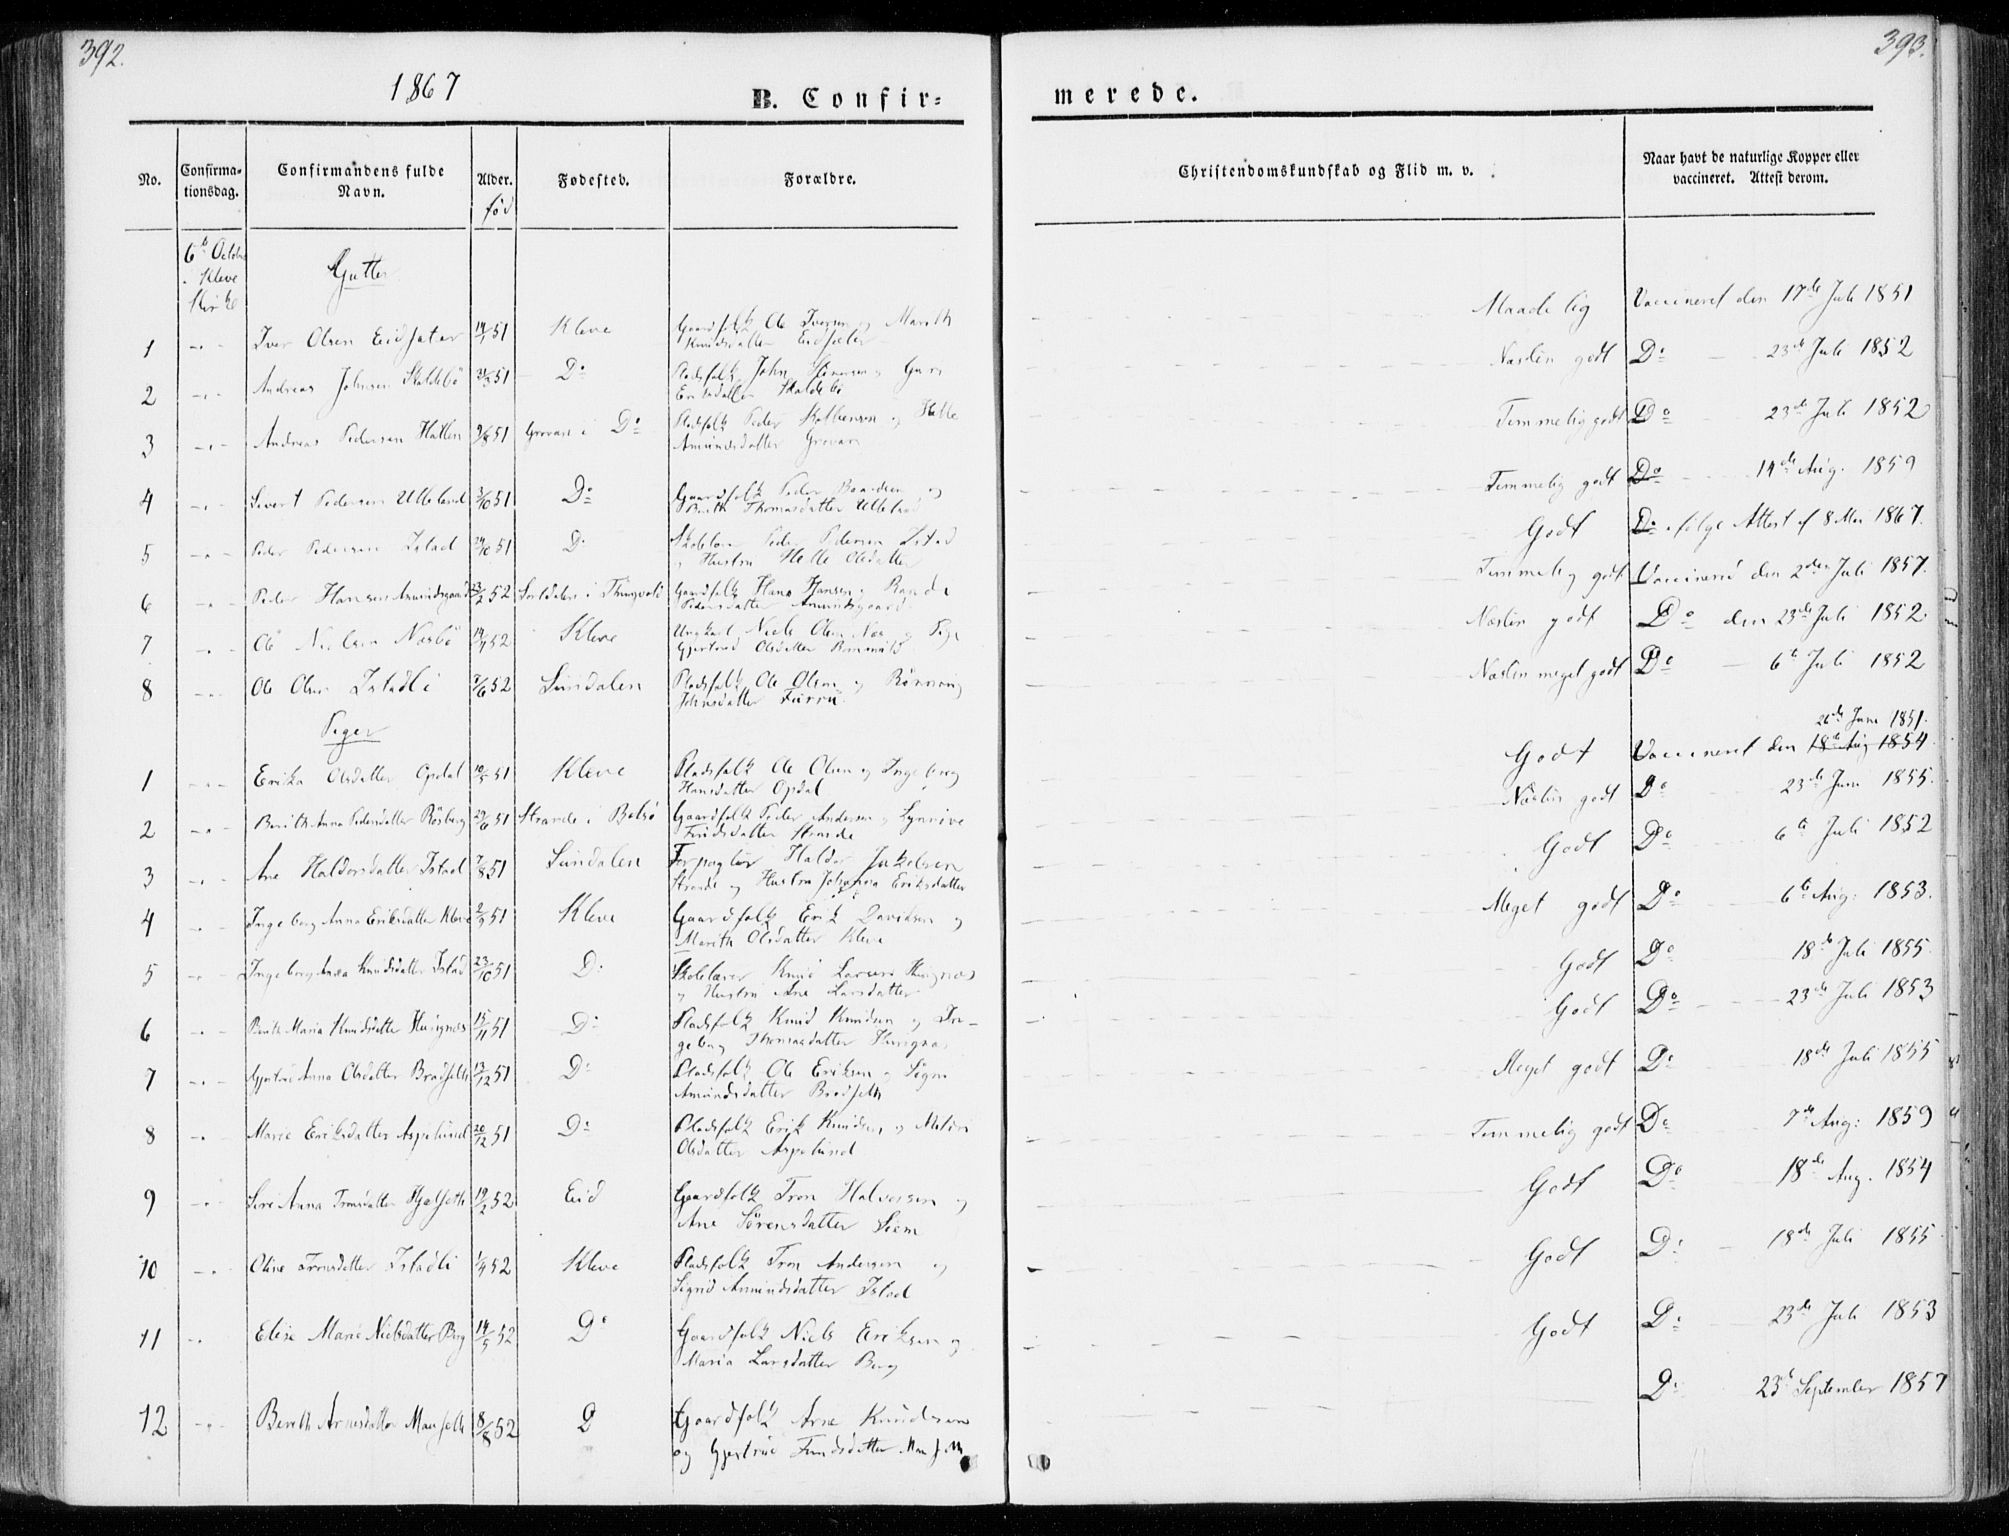 392.
393.
1867
B. Confir-
merede.
No.
Confirma-
tionsdag.
Confirmandens fulde
Navn.
Alder.
fød
Fødested.
Forældre.
Christendomskundskab og Flid m. v.
Naar havt de naturlige Kopper eller
vaccineret. Attest derom.
6te Octobr
i Kleve
Kirke
Gutter
1 Iver Olsen Eidsæter 14/1 51 Kleve Gaardfolk Ole Iversen og Marith
Knudsdatter Eidsæter Maadelig Vaccineret den 17de Juli 1851
2 Andreas Johnsen Skaldebö 31/3 51 Do Pladsfolk John Guri
Eriksdatter Skaldebö Næsten godt Do 23de Juli 1852
3 Andreas Pedersen Hatlen 9/8 51 Grovan i Do Pladsfolk Peder og Helle
Amundsdatter Grovan Temmelig godt Do 23de Juli 1852
4 Sivert Pedersen Utteland 3/10 51 Do Gaardfolk Peder og
Berith Thomasdatter Temmelig godt Do 14de Aug. 1859
5 Peder Pedersen Istad 29/10 51 Do Skolelærer Peder Pedersen Istad
og Hustru Helle Olsdatter Godt Do ifölge Attest af 8 Mai 1867.
6 Peder Hansen Amundsgaard 23/2 52 i Thingvold Gaardfolk Hans Hansen og Rande
Pedersdatter Amundsgaard Temmelig godt Vaccineret den 2den Juli 1857.
7 Ole Nielsen Næsbö 14/4 52 Kleve Ungkarl Niels Olsen og Pige
Gjertrud Olsdatter Næsten godt Do den 23de Juli 1852
8 Ole Olsen Istadli 7/6 52 Sundalen Pladsfolk Ole Olsen og Rönnoug
Johnsdatter Furru. Næsten meget godt Do 6te Juli 1852
Piger
26de Juni 1851.
1 Erika Olsdatter Opdal 10/5 51 Kleve Pladsfolk Ole Olsen og Ingeborg
Hansdatter Opdal Godt Vaccineret den 18de Aug 1854
2 Berith Anna Pedersdatter Rösberg 29/6 51 Strande i Bolsö Gaardfolk Peder Andersen og
Strande Næsten godt Do 23de Juni 1855.
3 Ane Haldorsdatter Istad 7/8 51 Sundalen Forpagter Haldor Jakobsen
Strande og Hustru Johanna Eriksdatter Godt Do 6te Juli 1852
4 Ingeborg Anna Eriksdatter Kleve 2/9 51 Kleve Gaardfolk Erik Davidsen og
Marith Olsdatter Kleve Meget godt Do 6te Aug: 1853.
5 Ingeborg Anna Knudsdatter Istad 23/10 51 Do Skolelærer Knud Larsen
og Hustru Ane Larsdatter Godt Do 18de Juli 1855.
6 Berith Maria Knudsdatter 15/11 51 Do Pladsfolk Knud Knudsen og In-
geborg Thomasdatter Godt Do 23de Juli 1853
7 Gjertrud Anna Olsdatter Bradseth 12/12 51 Do Pladsfolk Ole Eriksen og Signe
Amundsdatter Bradseth Meget godt Do 18de Juli 1855
8 Marie Eriksdatter Aspelund 20/12 51 Do Pladsfolk Erik Knudsen og
Olsdatter Aspelund Temmelig godt Do 7de Aug: 1859
9 Anna Tronsdatter Hjelseth 19/2 52 Eid Gaardfolk Tron Halvorsen og
Ane Sörensdatter Siem Godt Do 18de Aug. 1854
10 Oline Tronsdatter Istadli 1/4 52 Kleve Pladsfolk Tron Andersen og
Sigrid Amundsdatter Istad Godt Do 18de Juli 1855
11 Elise Marie Nielsdatter Berg 14/5 52 Do Gaardfolk Niels Eriksen og
Maria Larsdatter Berg Godt Do 23de Juli 1853
12 Bereth Arnesdatter Mauseth 8/8 52 D Gaardfolk Arne Knudsen
og Gjertrud Mauseth Do 23de September 1857